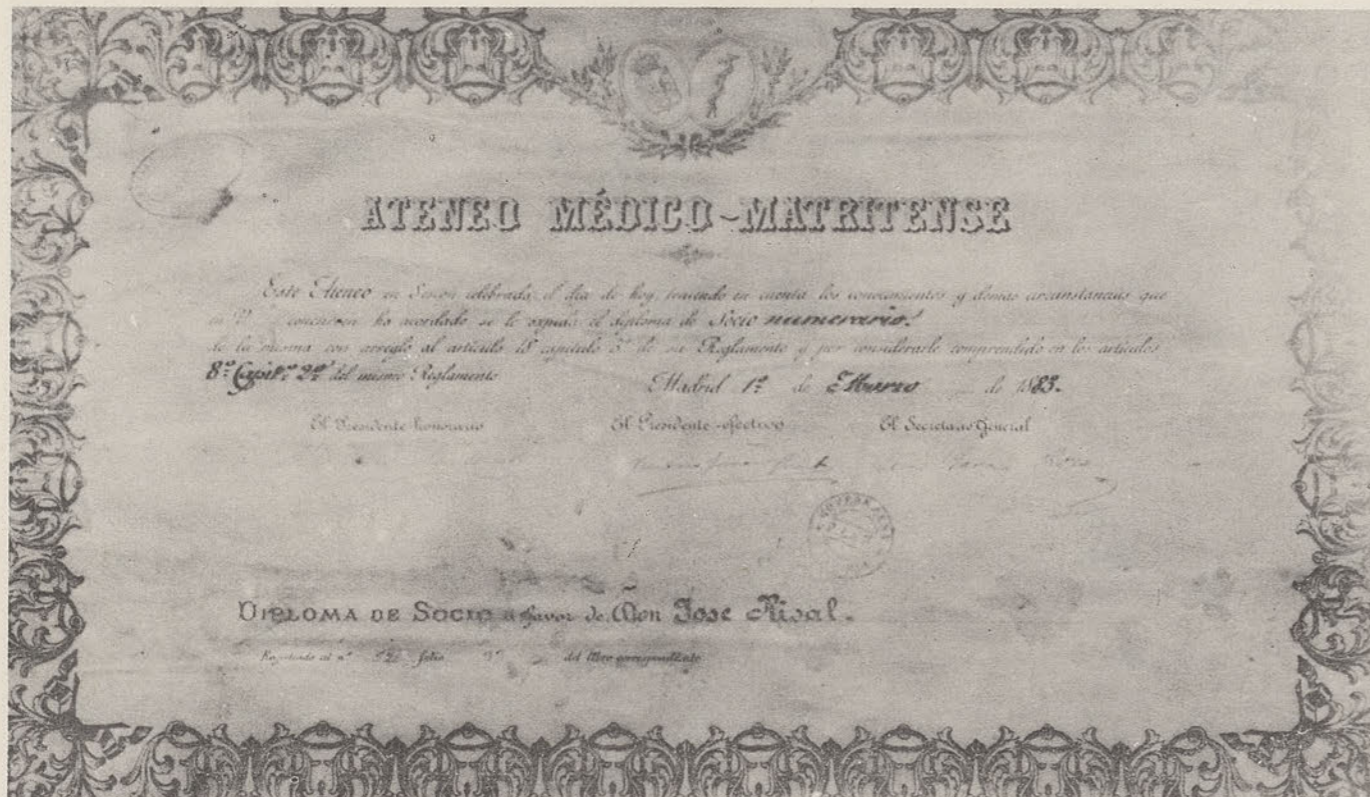 ATENEO MÉDICO-MATRITENSE
Este Ateneo en Sesion celebrada el dia de hoy, teniendo en cuenta los conocimientos y demas circunstancias que
en V. concurren ha acordado se le expida el diploma de Socio numerario.
de la misma con arreglo al articulo 18 capitulo 3º de su Reglamento y por considerarle comprendido en los articulos
8º Capitº 2º del mismo Reglamento Madrid 1º de Marzo de 1883.
El Presidente honorario El Presidente efectivo El Secretario General
DIPLOMA DE SOCIO a favor de Don Jose Risal.
Registrado al nº folio del libro correspondiente